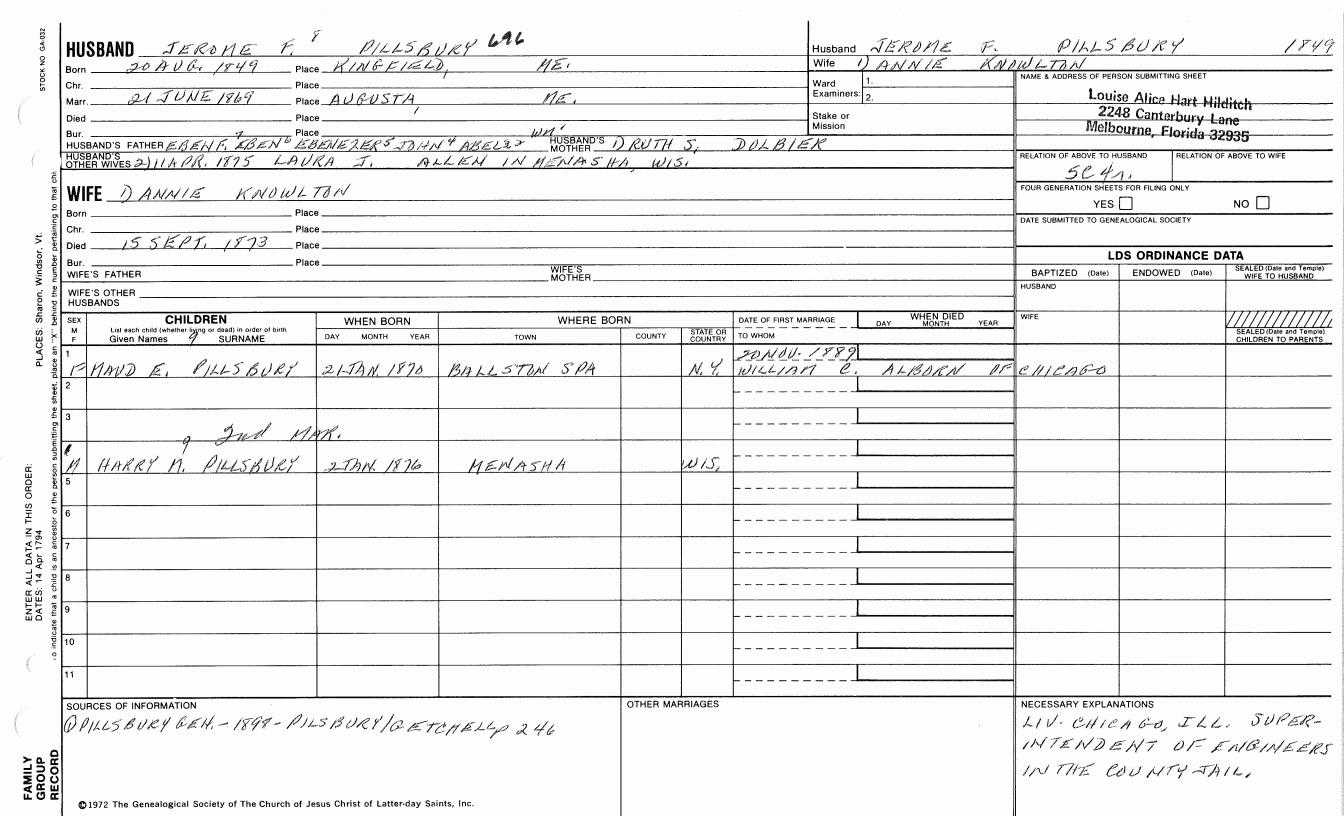 STOCK NO. GA-032
HUSBAND JEROME F. 8 PILLSBURY 696
Born 20 AUG. 1849 Place KINGFIELD, ME.
Chr. Place
Marr. 21 JUNE 1869 Place AUGUSTA, ME.
Died Place
Bur. Place
HUSBAND'S FATHER EBEN F. 7 EBEN 6 EBENEZER 5 JOHN 4 ABEL 3 2 WM 1 HUSBAND'S MOTHER 1) RUTH S. DOLBIER
HUSBAND'S OTHER WIVES 2) 11 APR. 1875 LAURA J. ALLEN IN MENASHA, WIS.
Husband JEROME F. PILLSBURY 1849
Wife 1) ANNIE KNOWLTON
Ward Examiners: 1.
2.
Stake or Mission
NAME & ADDRESS OF PERSON SUBMITTING SHEET
Louise Alice Hart Hilditch
2248 Canterbury Lane
Melbourne, Florida 32935
RELATION OF ABOVE TO HUSBAND RELATION OF ABOVE TO WIFE
5C4r.
FOUR GENERATION SHEETS FOR FILING ONLY
YES NO
DATE SUBMITTED TO GENEALOGICAL SOCIETY
WIFE 1) ANNIE KNOWLTON
Born Place
Chr. Place
Died 15 SEPT. 1873 Place
Bur. Place
WIFE'S FATHER WIFE'S MOTHER
WIFE'S OTHER HUSBANDS
LDS ORDINANCE DATA
BAPTIZED (Date) ENDOWED (Date) SEALED (Date and Temple) WIFE TO HUSBAND
HUSBAND
WIFE
SEALED (Date and Temple) CHILDREN TO PARENTS
SEX M F CHILDREN WHEN BORN WHERE BORN DATE OF FIRST MARRIAGE WHEN DIED
List each child (whether living or dead) in order of birth
Given Names 9 SURNAME DAY MONTH YEAR TOWN COUNTY STATE OR COUNTRY TO WHOM DAY MONTH YEAR
1 20 NOV. 1889
F MAUD E. PILLSBURY 21 JAN. 1870 BALLSTON SPA N.Y. WILLIAM C. ALBORN OF CHICAGO
2
3
9 2nd MAR.
M HARRY N. PILLSBURY 2 JAN. 1876 MENASHA WIS.
5
6
7
8
9
10
11
SOURCES OF INFORMATION
① PILLSBURY GEN. - 1898 - PILSBURY/GETCHELL p 246
OTHER MARRIAGES
NECESSARY EXPLANATIONS
LIV. CHICAGO, ILL. SUPER-
INTENDENT OF ENGINEERS
IN THE COUNTY JAIL.
©1972 The Genealogical Society of The Church of Jesus Christ of Latter-day Saints, Inc.
FAMILY
GROUP
RECORD
ENTER ALL DATA IN THIS ORDER:
DATES: 14 Apr 1794
PLACES: Sharon, Windsor, Vt.
indicate that a child is an ancestor of the person submitting the sheet, place an "X" behind the number pertaining to that